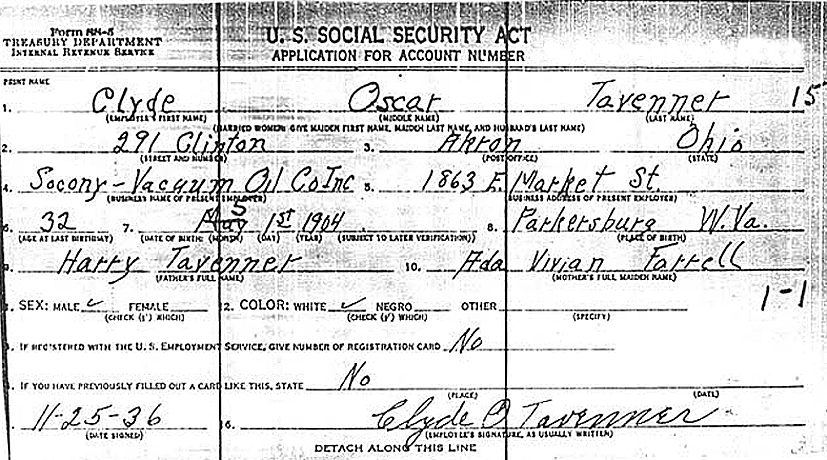 Form SS-5
TREASURY DEPARTMENT
INTERNAL REVENUE SERVICE
U. S. SOCIAL SECURITY ACT
APPLICATION FOR ACCOUNT NUMBER
PRINT NAME
1. Clyde Oscar Tavenner 15
(EMPLOYEE'S FIRST NAME) (MIDDLE NAME) (LAST NAME)
(MARRIED WOMEN: GIVE MAIDEN FIRST NAME, MAIDEN LAST NAME, AND HUSBAND'S LAST NAME)
2. 291 Clinton 3. Akron Ohio
(STREET AND NUMBER) (POST OFFICE) (STATE)
4. Socony-Vacuum Oil Co Inc 5. 1863 E. Market St.
(BUSINESS NAME OF PRESENT EMPLOYER) (BUSINESS ADDRESS OF PRESENT EMPLOYER)
6. 32 7. May 5 1st 1904 8. Parkersburg W. Va.
(AGE AT LAST BIRTHDAY) (DATE OF BIRTH: (MONTH) (DAY) (YEAR) (SUBJECT TO LATER VERIFICATION)) (PLACE OF BIRTH)
9. Harry Tavenner 10. Ada Vivian Farrell
(FATHER'S FULL NAME) (MOTHER'S FULL MAIDEN NAME)
1-1
. SEX: MALE ✓ FEMALE 12. COLOR: WHITE ✓ NEGRO OTHER
(CHECK (✓) WHICH) (CHECK (✓) WHICH) (SPECIFY)
. IF REGISTERED WITH THE U. S. EMPLOYMENT SERVICE, GIVE NUMBER OF REGISTRATION CARD No
. IF YOU HAVE PREVIOUSLY FILLED OUT A CARD LIKE THIS, STATE No
(PLACE) (DATE)
. 11-25-36 16. Clyde O Tavenner
(DATE SIGNED) (EMPLOYEE'S SIGNATURE, AS USUALLY WRITTEN)
DETACH ALONG THIS LINE